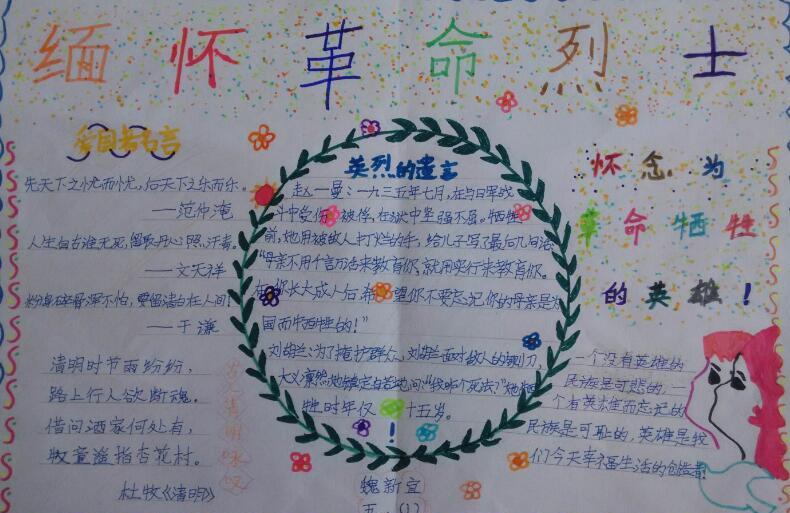 缅怀革命烈士
爱国者名言
先天下之忧而忧,后天下之乐而乐。
——范仲淹
人生自古谁无死,留取丹心照汗青。
——文天祥
粉骨碎身浑不怕,要留清白在人间!
——于谦
清明时节雨纷纷,
路上行人欲断魂。
借问酒家何处有,
牧童遥指杏花村。
杜牧《清明》
英烈的遗言
赵一曼:一九三五年七月,在与日军战
斗中受伤被俘,在狱中坚强不屈。牺牲
前,她用被敌人打烂的手,给儿子写了最后几句话
“母亲不用千言万语来教育你,就用实行来教育你。
在你长大成人后希望你不要忘记你的母亲是为
国而牺牲的!”
刘胡兰:为了掩护群众,刘胡兰面对敌人的铡刀
大义凛然,她镇定自若地问:“我咋个死法?”她牺
牲时年仅十五岁。
!
魏新宜
五.(1)
怀念为
革命牺牲
的英雄!
一个没有英雄的
民族是可悲的,一
个有英雄而忘记的
民族是可耻的,英雄是我
们今天幸福生活的创造者!